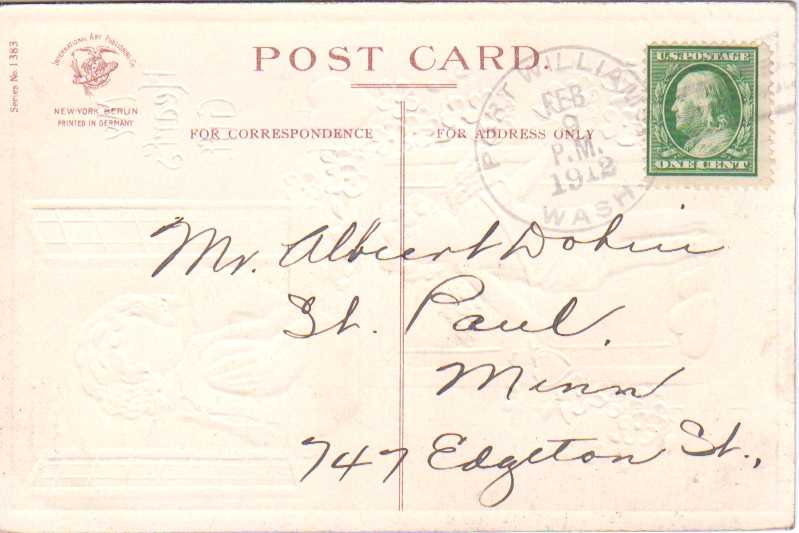 Series No. 1383
INTERNATIONAL ART PUBLISHING CO.
NEW-YORK BERLIN
PRINTED IN GERMANY
POST CARD.
FOR CORRESPONDENCE
FOR ADDRESS ONLY
PORT WILLIAMS
FEB
9
P.M.
1912
WASH.
U.S. POSTAGE
ONE CENT
Mr. Albert Dobin
St. Paul,
Minn
747 Edgeton St.,